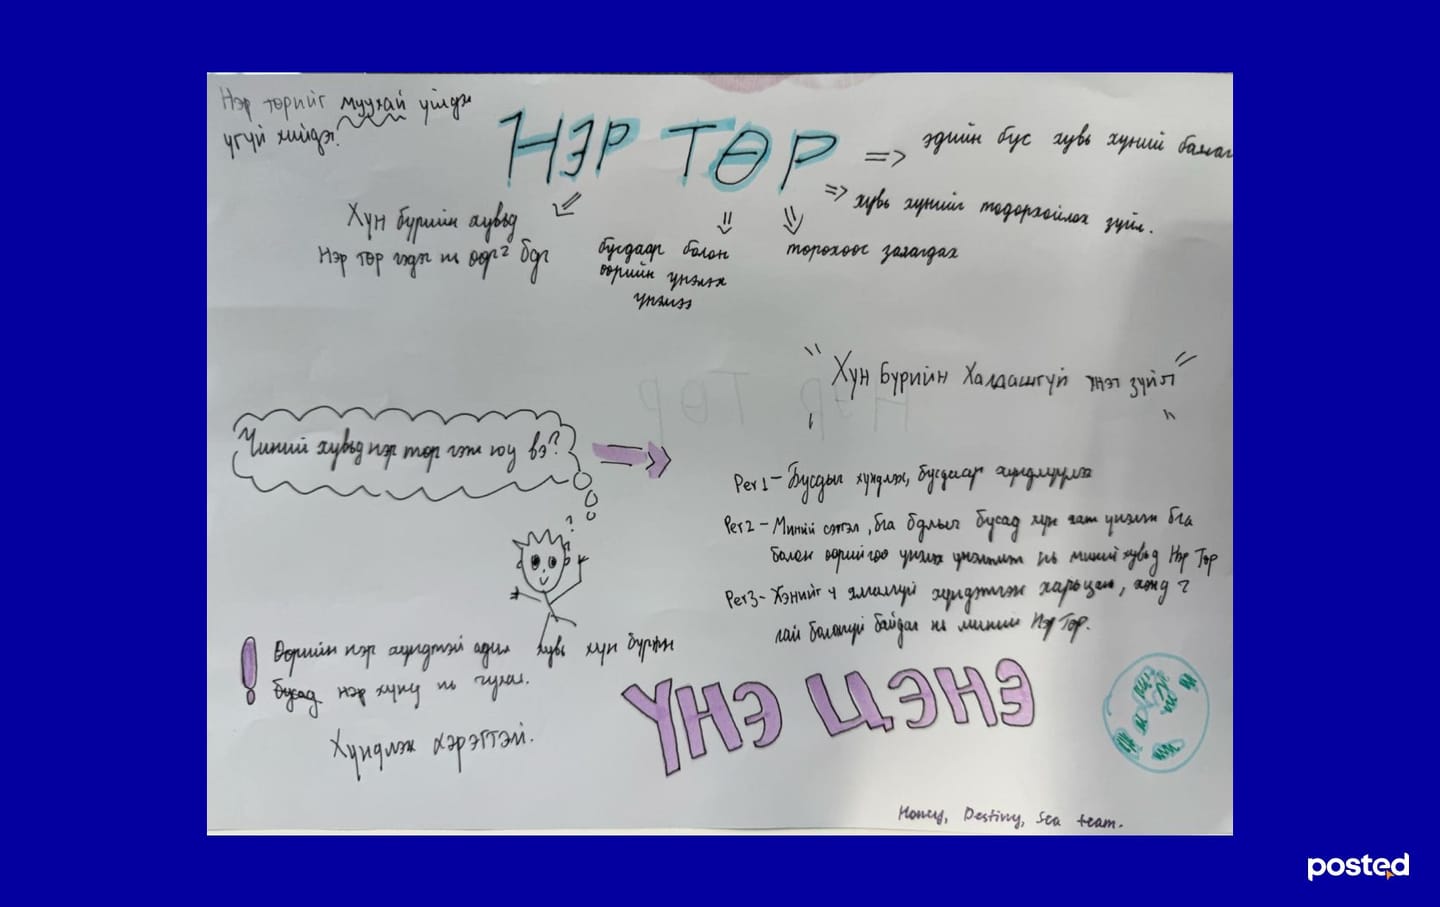 Нэр төрийг муухай үйлдэл
үгүй хийдэг!
НЭР ТӨР
=> эдийн бус хувь хүний баялаг
=> хувь хүнийг тодорхойлох зүйл.
Хүн бүрийн хувьд
Нэр төр гэдэг нь өөр2 бдг
бусдаар болон
өөрийн үнэлэх
үнэлгээ
төрөхөөс заяагдах
" Хүн бүрийн Халдашгүй үнэт зүйл "
Чиний хувьд нэр төр гэж юу вэ?
Per1 - Бусдыг хүндлэх, бусдаар хүндлүүлэх
Per2 - Миний сэтгэл, бусад хүн үнэлж бга
болон өөрийгөө үнэлэх үнэлэмж нь миний хувьд Нэр Төр
Per3 - Хэнийг ч ялгалгүй хүндэтгэж харьцаж, хэнд ч
гай болохгүй байдал нь миний Нэр Төр.
! Өөрийн нэр хүндтэй адил хувь хүн бүрийн
бусад нэр хүнд нь чухал.
Хүндлэх хэрэгтэй.
ҮНЭ ЦЭНЭ
Honey, Destiny, Sea team.
posted